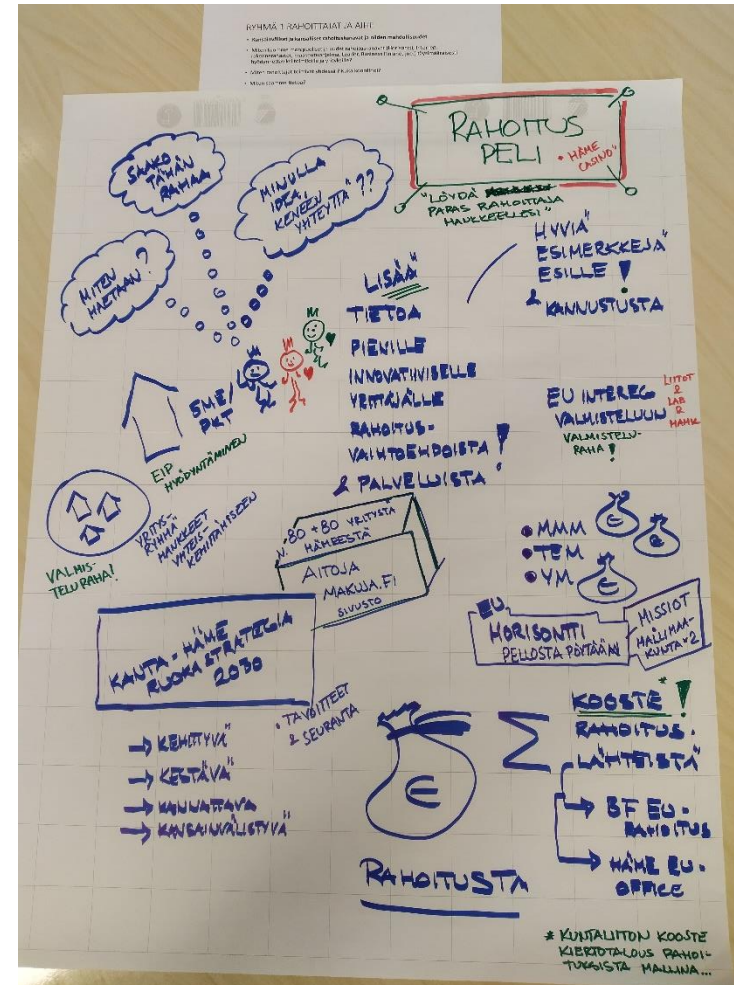 RYHMÄ 1 RAHOITTAJAT JA
RAHOITUS
PELI
• HÄME
CASINO"
"LÖYDÄ
PARAS RAHOITTAJA
HANKKEELLESI"
SAAKO
TÄHÄN
RAHAA
MINULLA
IDEA,
KENEEN
YHTEYTTÄ??
MITEN
HAETAAN?
HYVIÄ
ESIMERKKEJÄ
ESILLE!
& KANNUSTUSTA
LISÄÄ
TIETOA
PIENILLE
INNOVATIIVISELLE
YRITTÄJÄLLE
RAHOITUS-
VAIHTOEHDOISTA
& PALVELUISTA!
SME/
PKT
EIP
HYÖDYNTÄMINEN
EU INTEREG
VALMISTELUUN
VALMISTELU-
RAHA!
LIITOT
&
LAB
&
HAMK
YRITYS-
RYHMÄ
HANKKEET
YHTEIS-
KEHITTÄMISEEN
VALMIS-
TELURAHA!
N. 80 + 80 YRITYSTÄ
HÄMEESTÄ
AITOJA
MAKUJA.FI
SIVUSTO
• MMM
• TEM
• YM
€
EU
HORISONTTI
PELLOSTA PÖYTÄÄN
MISSIOT
HALLI MAA-
KUNTA*2
KANTA-HÄME
RUOKASTRATEGIA
2030
• TAVOITTEET
& SEURANTA
→ KEHITTYVÄ
→ KESTÄVÄ
→ KANNATTAVA
→ KANSAINVÄLISTYVÄ
€
RAHOITUSTA
Σ
KOOSTE*!
RAHOITUS-
LÄHTEISTÄ
→ BF EU-
RAHOITUS
→ HÄME EU-
OFFICE
* KUNTALIITON KOOSTE
KIERTOTALOUS RAHOI-
TUKSISTA MALLINA...